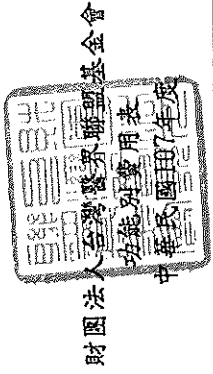 財團法人台灣醫界聯盟基金會
功能別費用表
中華民國107年度